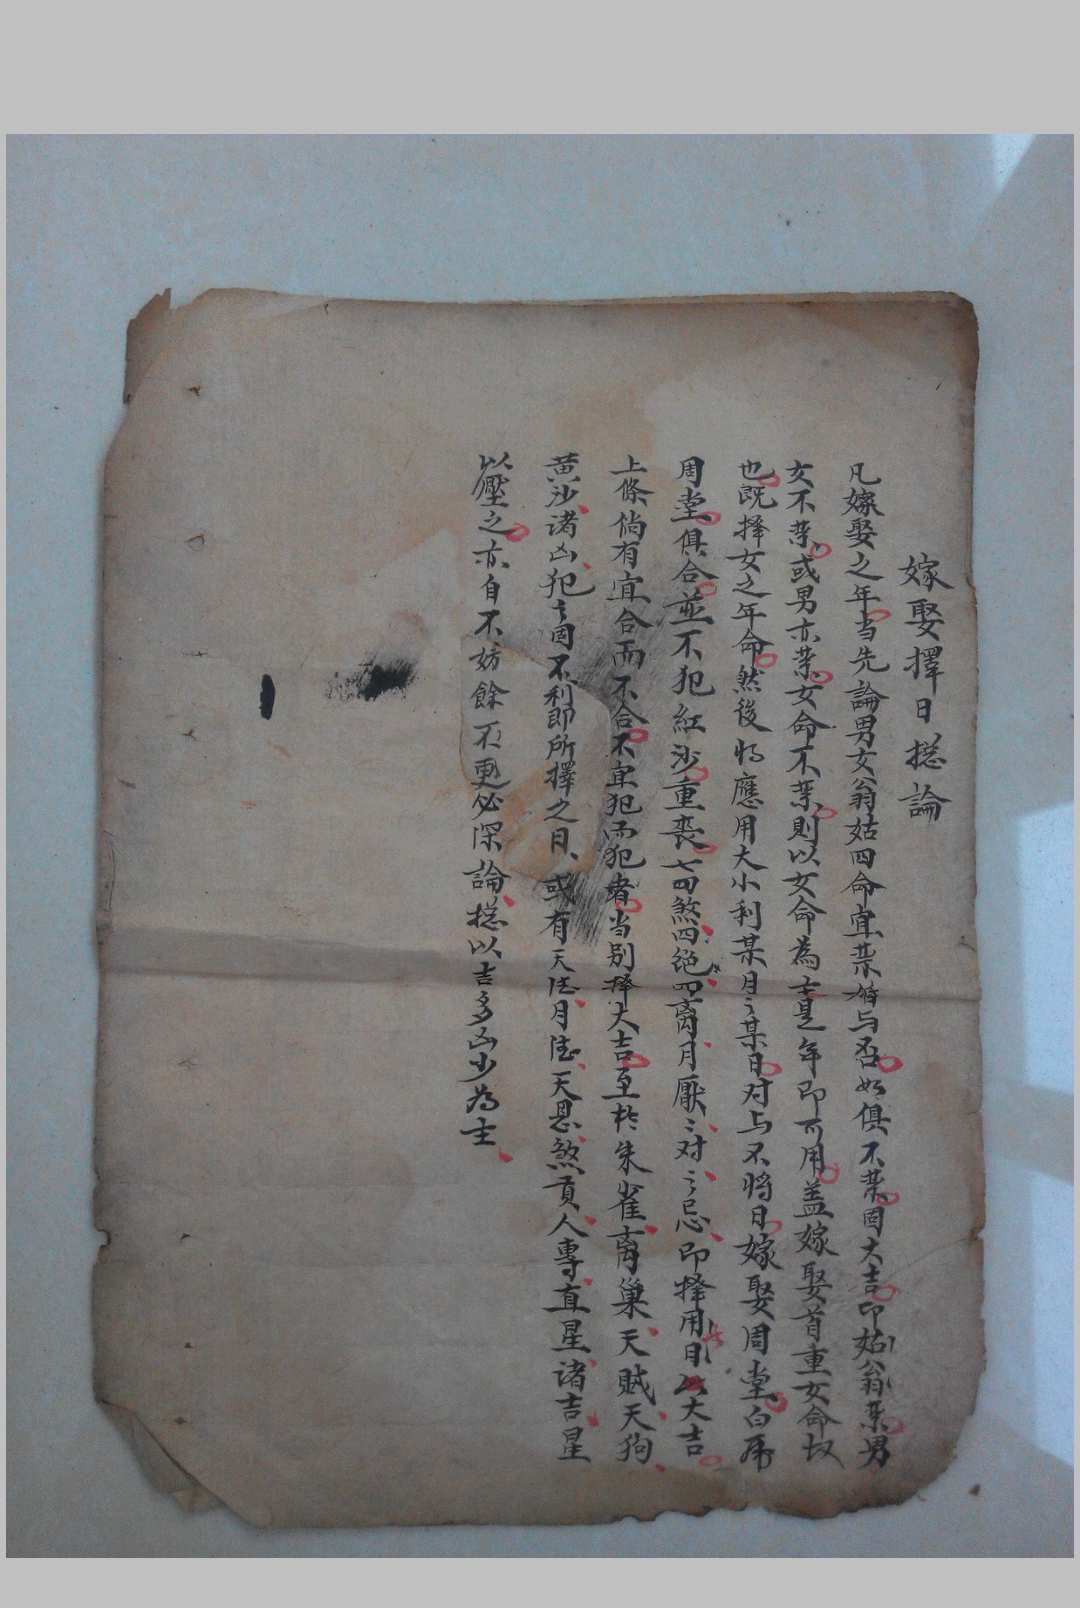 嫁娶擇日捴論
凡嫁娶之年当先論男女翁姑四命宜禁婚与否如俱不禁固大吉即姑翁禁男
女不禁或男亦禁女命不禁則以女命為主是年即可用蓋嫁娶首重女命故
也既择女之年命然後将應用大小利某月〻某日对与不将日嫁娶周堂白虎
周堂俱合並不犯紅沙重喪七四煞四絶四离月厭〻对〻忌即择用日以大吉
上條倘有宜合而不合不宜犯而犯者当别择大吉至於朱雀离巢天賊天狗
黄沙诸凶犯〻固不利即所擇之日或有天德月德天恩煞貢人專直星诸吉星
以壓之亦自不妨餘不更必深論捴以吉多凶少為主